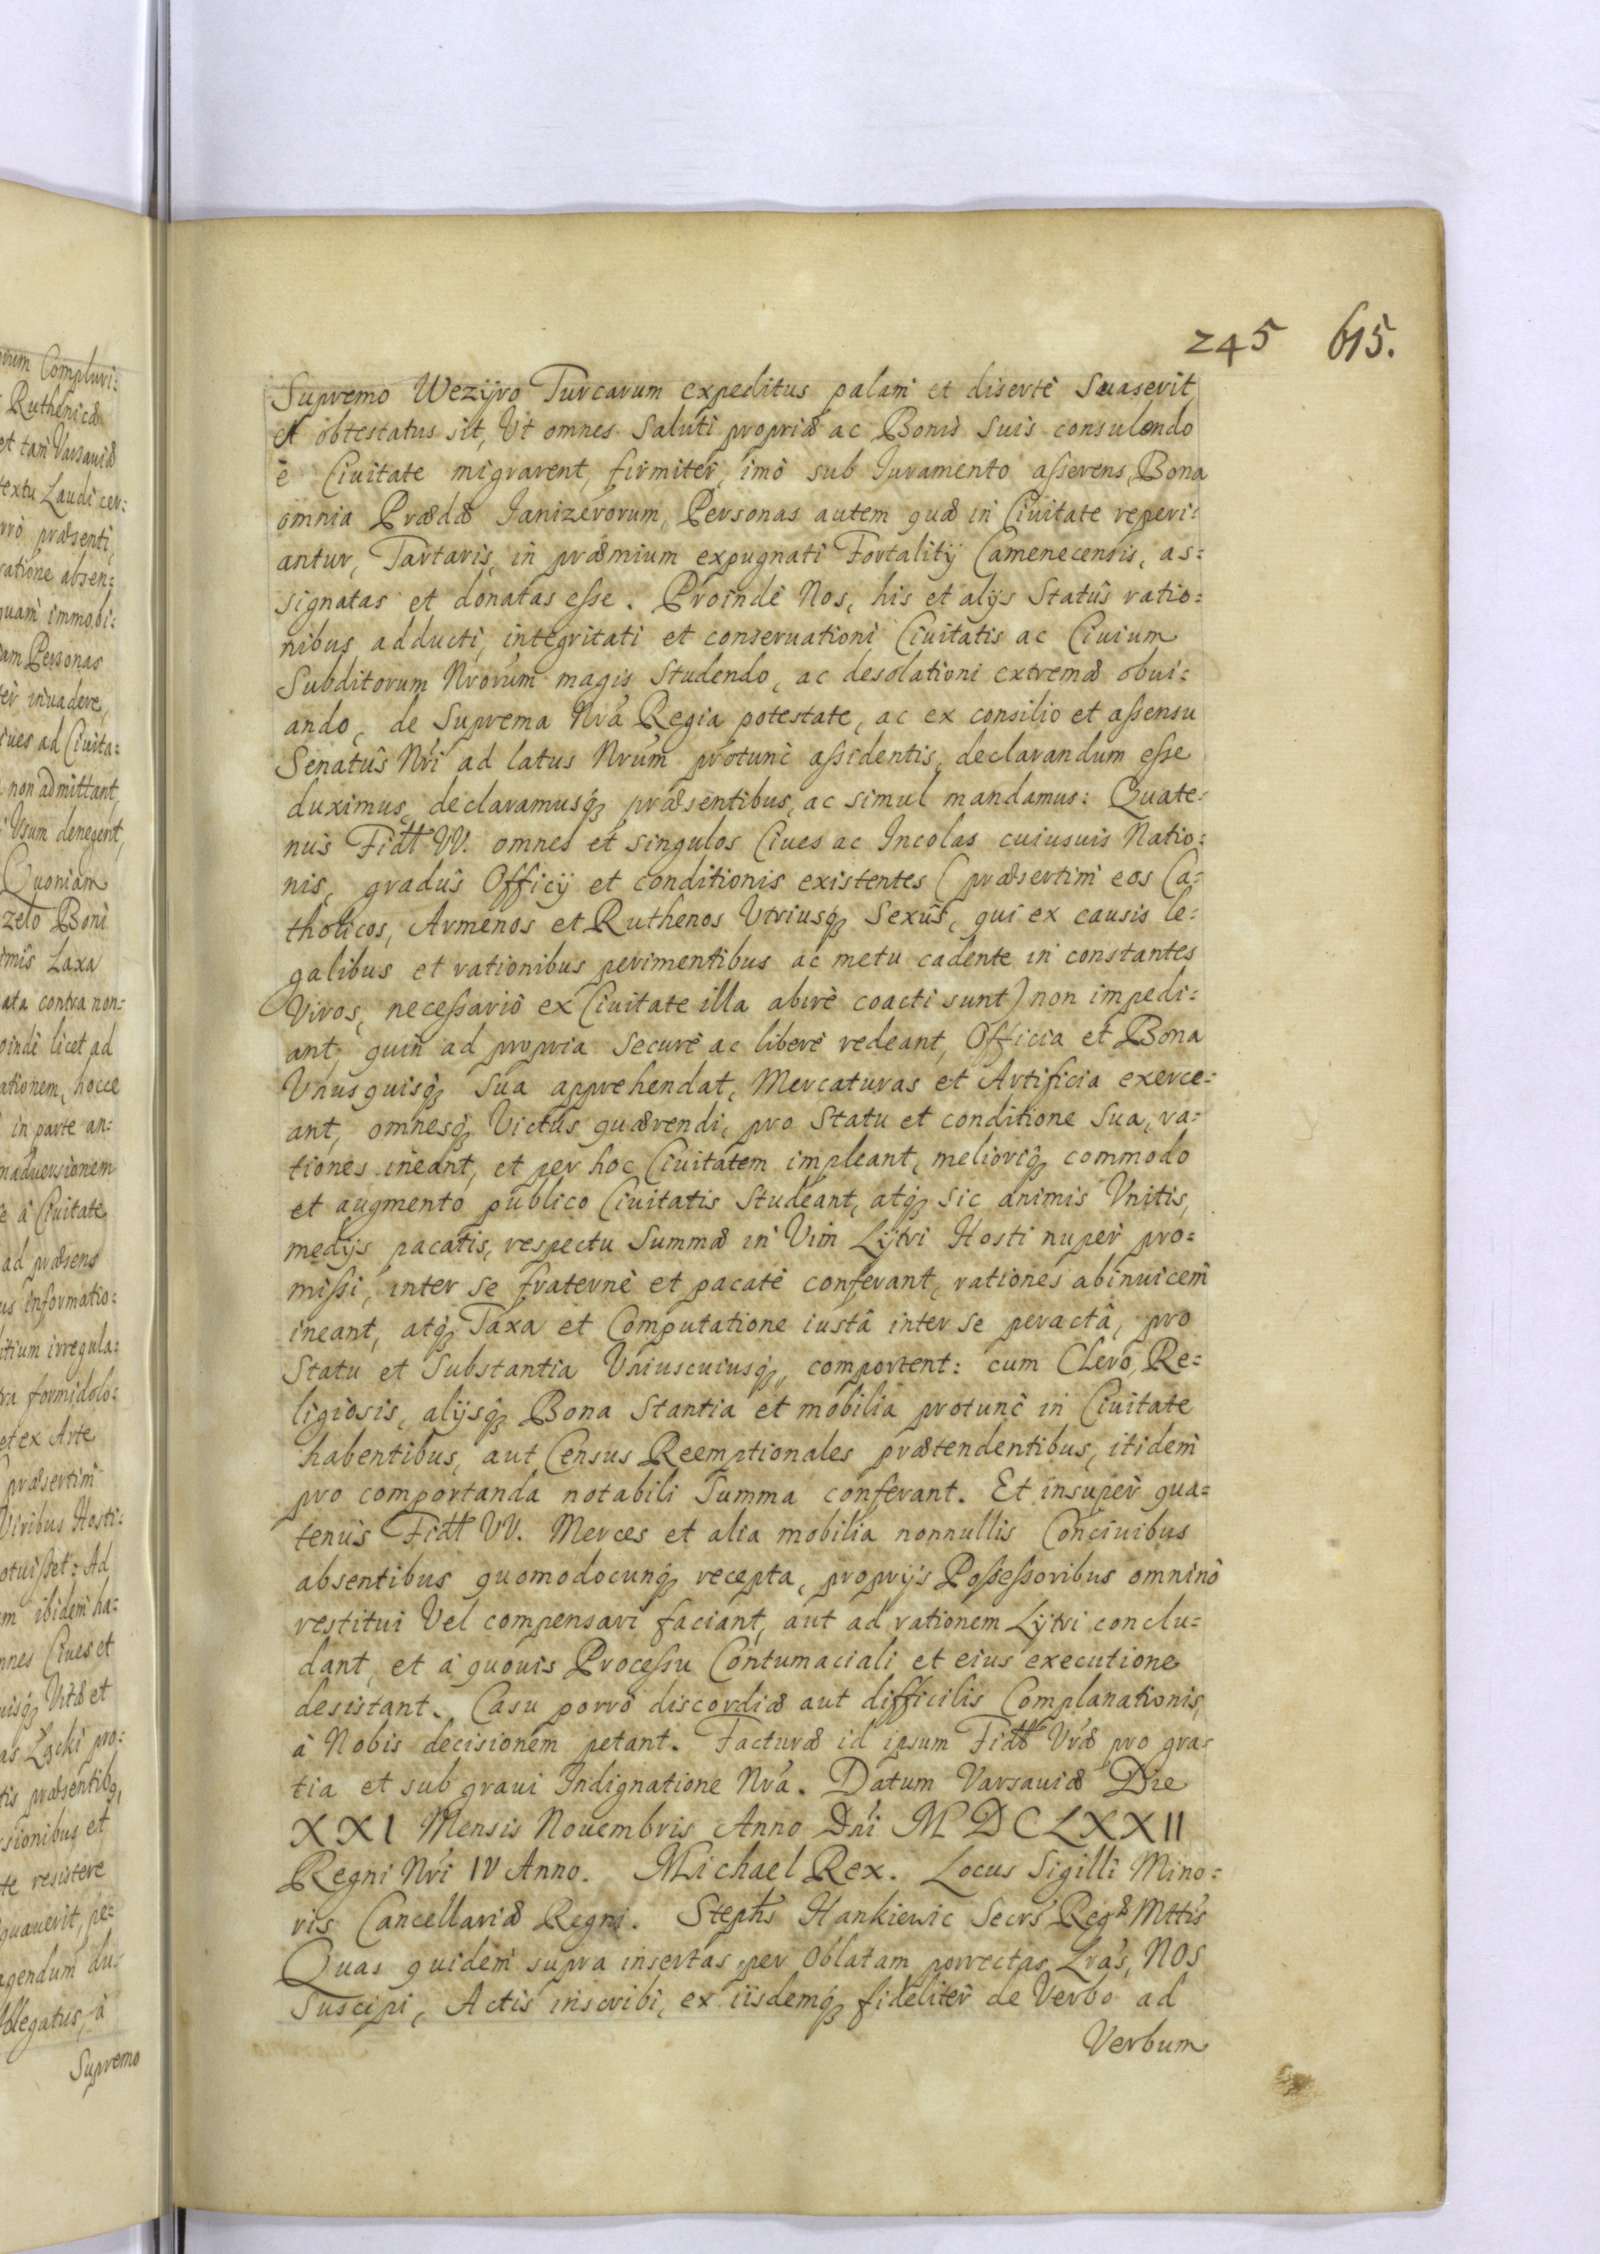 245 615.
Supremo Wezÿro Turcarum expeditus palam et disertè Suaserit,
et obtestatus sit, Ut omnes Saluti propriæ ac Bonis Suis consulendo
è Ciuitate migrarent, firmiter, imò sub Iuramento asserens, Bona
omnia Prædæ Janizerorum, Personas autem quæ in Ciuitate reperi=
antur, Tartaris, in præmium expugnati Fortalitÿ Camenecensis, as=
signatas et donatas esse. Proindè Nos, his et alÿs Statûs ratio=
nibus adducti, integritati et conseruationi Ciuitatis ac Ciuium
Subditorum Nrorum magis Studendo, ac desolationi extremæ obui=
ando, de Suprema Nra Regia potestate, ac ex consilio et assensu
Senatûs Nri ad latus Nrum protunc assidentis, declarandum esse
duximus, declaramusq3 præsentibus, ac simul mandamus: Quate=
nus Fidtt VV. omnes et singulos Ciues ac Incolas cuiusuis Natio=
nis, gradûs Officÿ et conditionis existentes (præsertim eos Ca=
tholicos, Armenos et Ruthenos Utriusq3 Sexûs, qui ex causis le=
galibus et rationibus perimentibus ac metu cadente in constantes
Viros, necessariò ex Ciuitate illa abire coacti sunt) non impedi=
ant, quin ad propria Securè ac liberè redeant, Officia et Bona
Unusquisq3 Sua apprehendat, Mercaturas et Artificia exerce=
ant, omnesq3 Victûs quærendi, pro Statu et conditione Sua, ra=
tiones ineant, et per hoc Ciuitatem impleant, melioriq3 commodo
et augmento publico Ciuitatis Studeant, atq3 Sic animis Unitis,
medÿs pacatis, respectu Summæ in Vim Lÿtri Hosti nuper pro=
missi, inter se fraternè et pacatè conferant, rationes abinuicem
ineant, atq3 Taxa et Computatione iustâ inter Se peractâ, pro
Statu et Substantia Uniuscuiusq3, comportent: cum Clero, Re=
ligiosis, alÿsq3 Bona Stantia et mobilia protunc in Ciuitate
habentibus, aut Census Reemptionales prætendentibus, itidem
pro comportanda notabili Summa conferant. Et insuper qua=
tenus Fidtt VV. Merces et alia mobilia nonnullis Conciuibus
absentibus quomodocunq3 recepta, proprÿs Possessoribus omninò
restitui Vel compensari faciant, aut ad rationem Lÿtri conclu=
dant, et à quouis Processu Contumaciali et eius executione
desistant. Casu porrò discordiæ aut difficilis Complanationis,
à Nobis decisionem petant. Facturæ id ipsum Fidtt Vræ pro gra=
tia et sub graui Indignatione Nra. Datum Varsauiæ Die
XXI Mensis Nouembris Anno Dni MDCLXXII
Regni Nri IV Anno. Michael Rex. Locus Sigilli Mino=
ris Cancellariæ Regni. Stephs Hankiewic Secrs Regæ Mttis
Quas quidem supra insertas per oblatam porrectas Lras, NOS
Suscipi, Actis inscribi, ex iisdemq3 fideliter de Verbo ad
Verbum